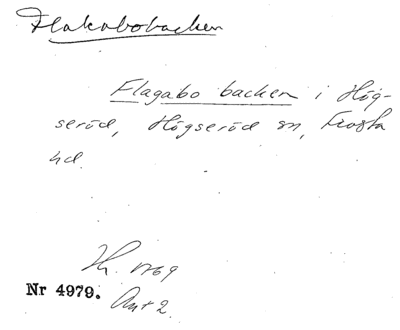 Flakabobacken
Flagabo backen i Hög-
seröd, Högseröd sn, Frosta
hd.
Nr 4979.